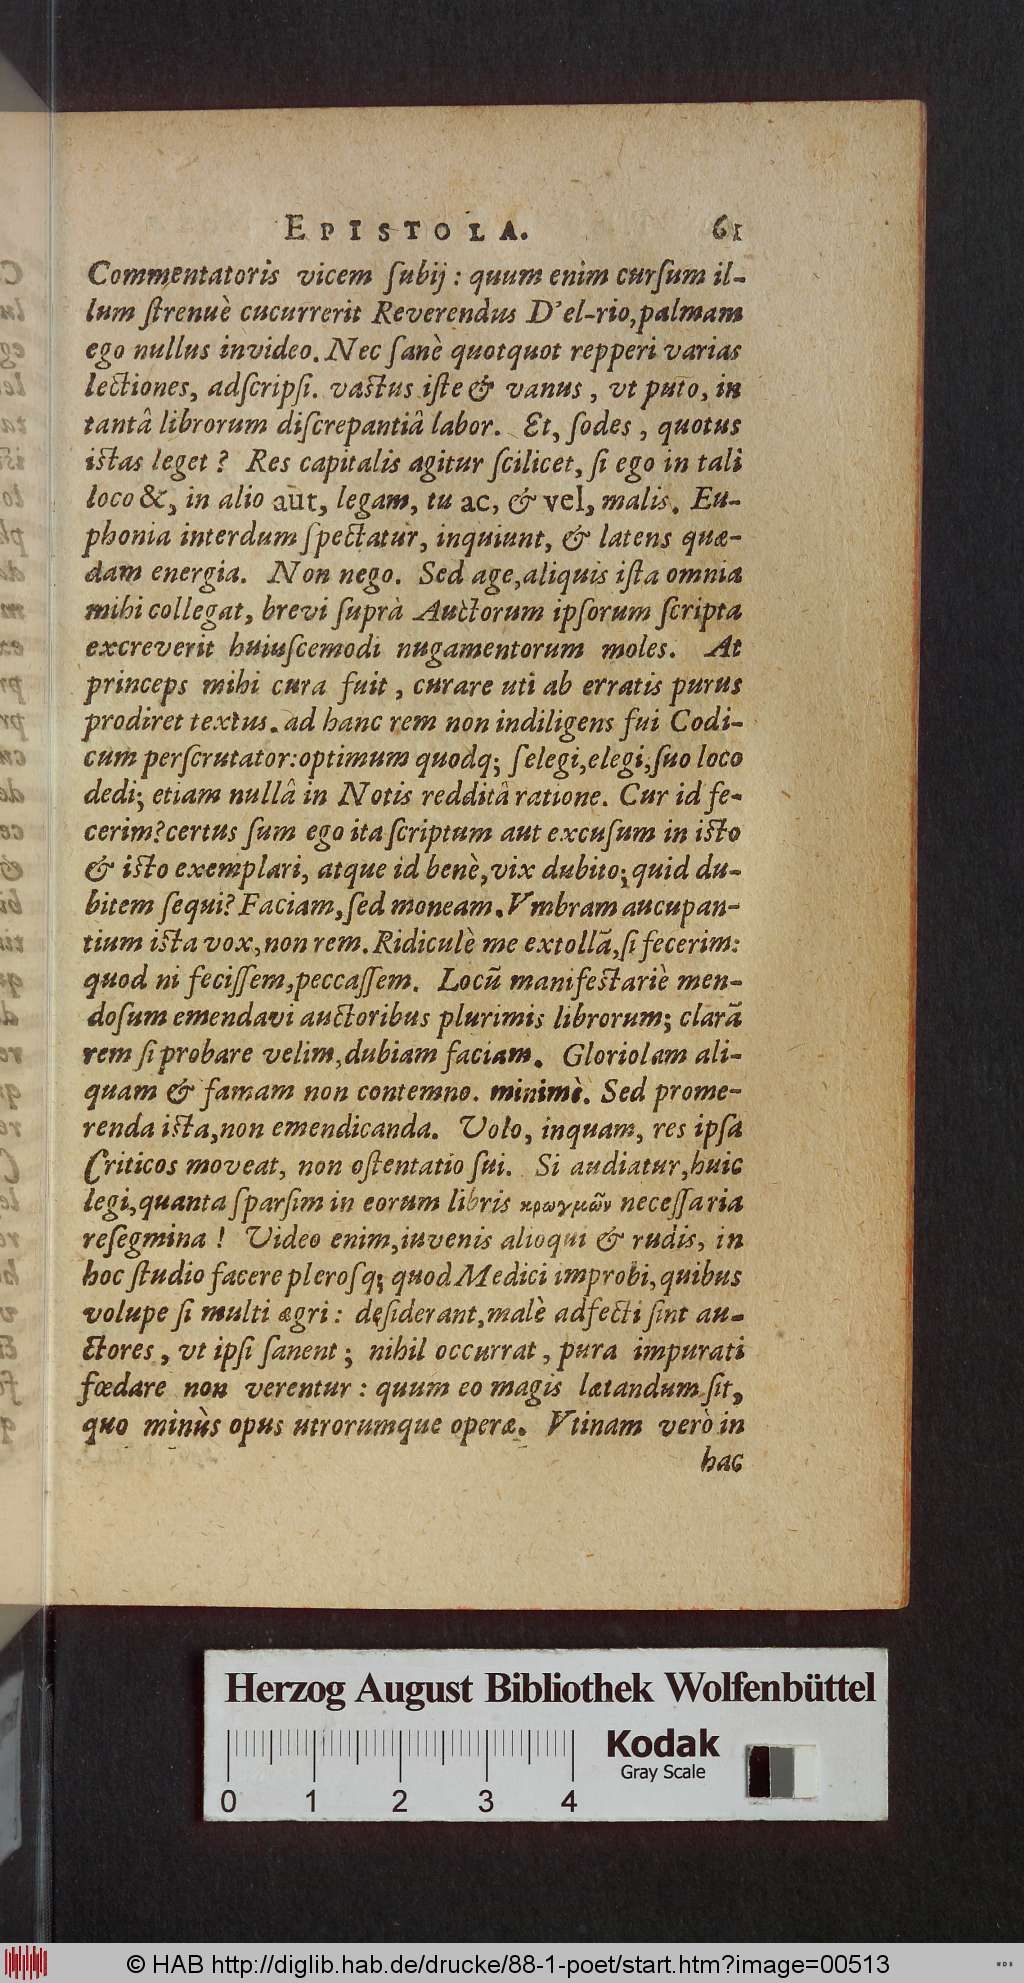 EPISTOLA. 61
Commentatoris vicem ſubij : quum enim curſum il-
lum ſtrenuè cucurrerit Reverendus D'el-rio, palmam
ego nullus invideo. Nec ſanè quotquot repperi varias
lectiones, adſcripſi. vaſtus iſte & vanus, vt puto, in
tantâ librorum diſcrepantiâ labor. Et, ſodes, quotus
iſtas leget ? Res capitalis agitur ſcilicet, ſi ego in tali
loco &, in alio aut, legam, tu ac, & vel, malis. Eu-
phonia interdum ſpectatur, inquiunt, & latens quæ-
dam energia. Non nego. Sed age, aliquis iſta omnia
mihi collegat, brevi ſuprà Auctorum ipſorum ſcripta
excreverit huiuſcemodi nugamentorum moles. At
princeps mihi cura fuit, curare uti ab erratis purus
prodiret textus. ad hanc rem non indiligens fui Codi-
cum perſcrutator: optimum quodq; ſelegi, elegi, ſuo loco
dedi; etiam nullâ in Notis redditâ ratione. Cur id fe-
cerim? certus ſum ego ita ſcriptum aut excuſum in iſto
& iſto exemplari, atque id benè, vix dubito; quid du-
bitem ſequi? Faciam, ſed moneam. Vmbram aucupan-
tium iſta vox, non rem. Ridiculè me extollã, ſi fecerim:
quod ni feciſſem, peccaſſem. Locũ manifeſtariè men-
doſum emendavi auctoribus plurimis librorum; clarã
rem ſi probare velim, dubiam faciam. Gloriolam ali-
quam & famam non contemno. minimè. Sed prome-
renda iſta, non emendicanda. Volo, inquam, res ipſa
Criticos moveat, non oſtentatio ſui. Si audiatur, huic
legi, quanta ſparſim in eorum libris κρωγμῶν neceſſaria
reſegmina ! Video enim, iuvenis alioqui & rudis, in
hoc ſtudio facere pleroſq; quod Medici improbi, quibus
volupe ſi multi ægri : deſiderant, malè adfecti ſint au-
ctores, vt ipſi ſanent ; nihil occurrat, pura impurati
fœdare non verentur : quum eo magis lætandum ſit,
quo minùs opus utrorumque operæ. Vtinam verò in
hac
Herzog August Bibliothek Wolfenbüttel
Kodak
Gray Scale
0 1 2 3 4
© HAB http://diglib.hab.de/drucke/88-1-poet/start.htm?image=00513